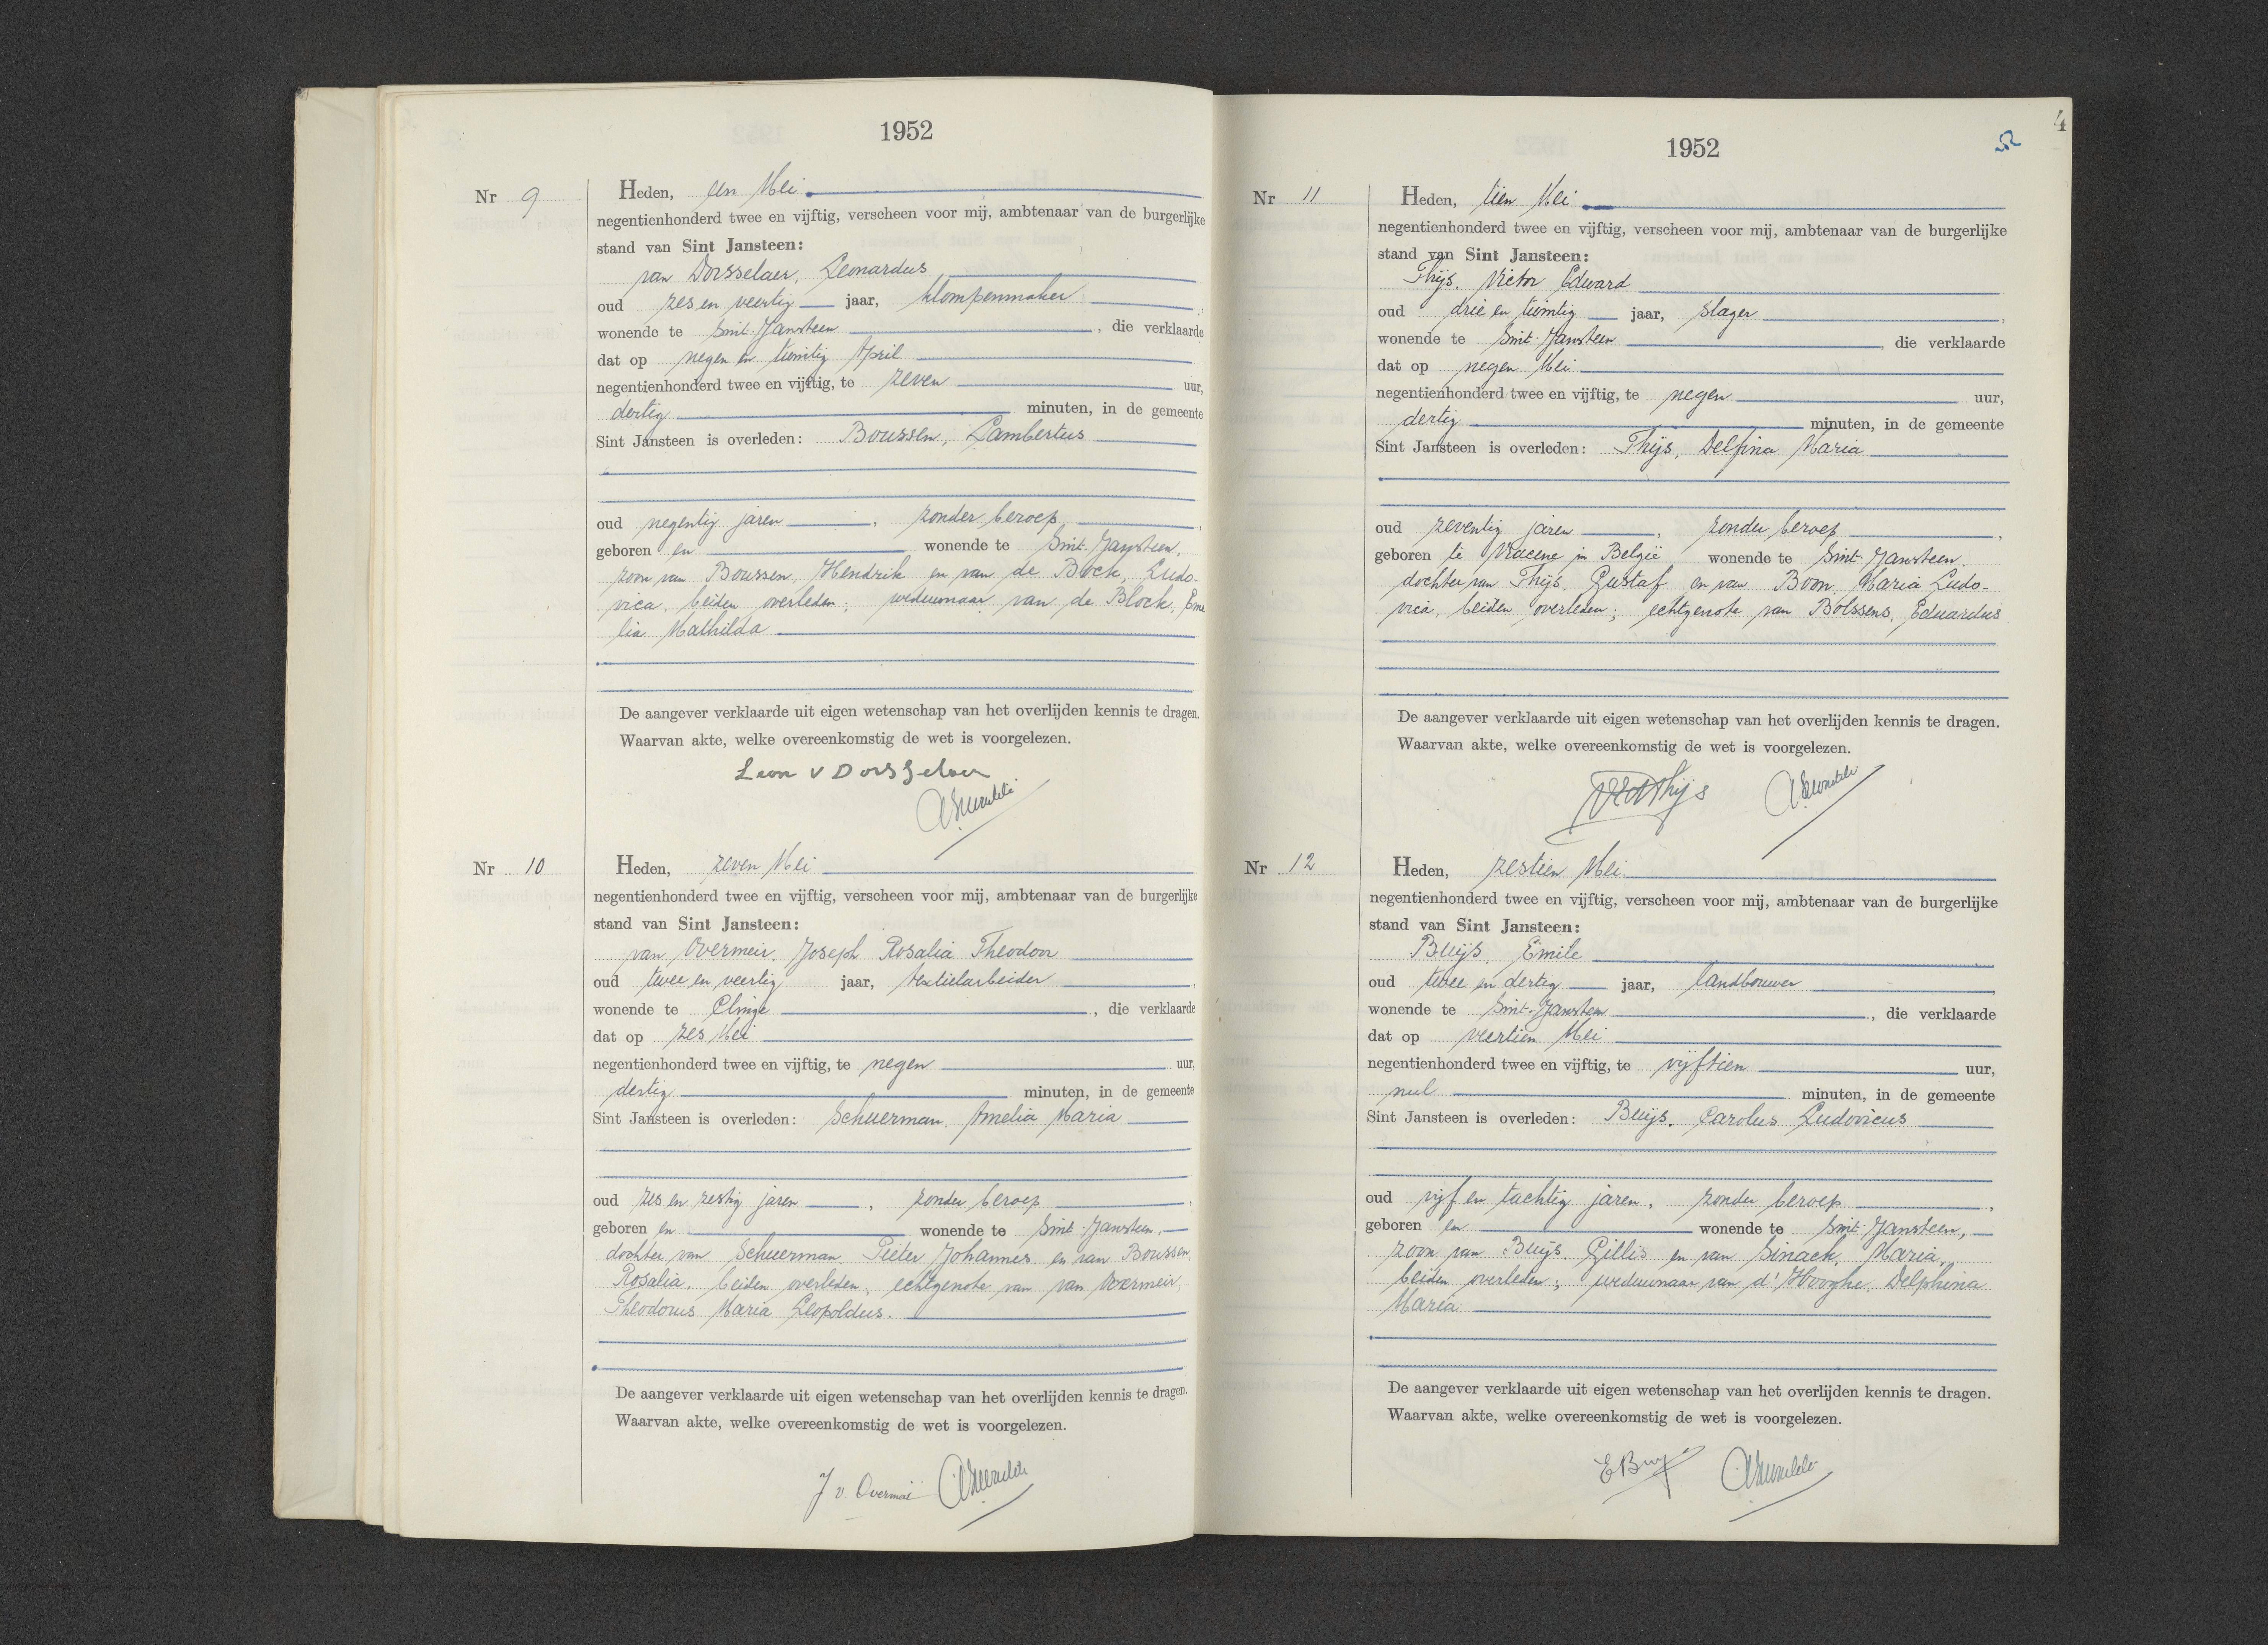 1952
Nr 9
Heden, een Mei
negentienhonderd twee en vijftig, verscheen voor mij, ambtenaar van de burgerlijke
stand van Sint Jansteen:
van Dorsselaer, Leonardus
oud zes en veertig jaar, klompenmaker
wonende te Sint-Jansteen, die verklaarde
dat op negen en twintig April
negentienhonderd twee en vijftig, te zeven uur,
dertig minuten, in de gemeente
Sint Jansteen is overleden: Boussen, Lambertus
oud negentig jaren, zonder beroep,
geboren en wonende te Sint-Jansteen,
zoon van Boussen, Hendrik en van de Bock, Ludo-
vica, beiden overleden; weduwnaar van de Block, Eme
lia Mathilda
De aangever verklaarde uit eigen wetenschap van het overlijden kennis te dragen.
Waarvan akte, welke overeenkomstig de wet is voorgelezen.
Leon v Dorsselaer
Nr 10
Heden, zeven Mei
negentienhonderd twee en vijftig, verscheen voor mij, ambtenaar van de burgerlijke
stand van Sint Jansteen:
van Overmeir, Joseph Rosalia Theodoor
oud twee en veertig jaar, textielarbeider,
wonende te Clinge, die verklaarde
dat op zes Mei
negentienhonderd twee en vijftig, te negen uur,
dertig minuten, in de gemeente
Sint Jansteen is overleden: Schuerman, Amelia Maria
oud zes en zestig jaren, zonder beroep,
geboren en wonende te Sint-Jansteen,
dochter van Schuerman, Pieter Johannes en van Boussen,
Rosalia, beiden overleden, echtgenote van van Overmeir,
Theodorus Maria Leopoldus.
De aangever verklaarde uit eigen wetenschap van het overlijden kennis te dragen.
Waarvan akte, welke overeenkomstig de wet is voorgelezen.
J v. Overmeir
4
1952
Nr 11
Heden, tien Mei
negentienhonderd twee en vijftig, verscheen voor mij, ambtenaar van de burgerlijke
stand van Sint Jansteen:
Thijs, Victor Edward
oud drie en twintig jaar, slager,
wonende te Sint-Jansteen, die verklaarde
dat op negen Mei
negentienhonderd twee en vijftig, te negen uur,
dertig minuten, in de gemeente
Sint Jansteen is overleden: Thijs, Delfina Maria
oud zeventig jaren, zonder beroep,
geboren te Vracene in België wonende te Sint-Jansteen.
dochter van Thijs, Gustaf en van Boon, Maria Ludo-
vica, beiden overleden; echtgenote van Bolssens, Eduardus
De aangever verklaarde uit eigen wetenschap van het overlijden kennis te dragen.
Waarvan akte, welke overeenkomstig de wet is voorgelezen.
Thijs
Nr 12
Heden, zestien Mei
negentienhonderd twee en vijftig, verscheen voor mij, ambtenaar van de burgerlijke
stand van Sint Jansteen:
Buijs, Emile
oud twee en dertig jaar, landbouwer,
wonende te Sint-Jansteen, die verklaarde
dat op veertien Mei
negentienhonderd twee en vijftig, te vijftien uur,
nul minuten, in de gemeente
Sint Jansteen is overleden: Buijs, Carolus Ludovicus
oud vijf en tachtig jaren, zonder beroep,
geboren en wonende te Sint-Jansteen,
zoon van Buijs, Gillis en van Sinack, Maria,
beiden overleden; weduwnaar van d'Hooghe, Delphina
Maria
De aangever verklaarde uit eigen wetenschap van het overlijden kennis te dragen.
Waarvan akte, welke overeenkomstig de wet is voorgelezen.
E Buys